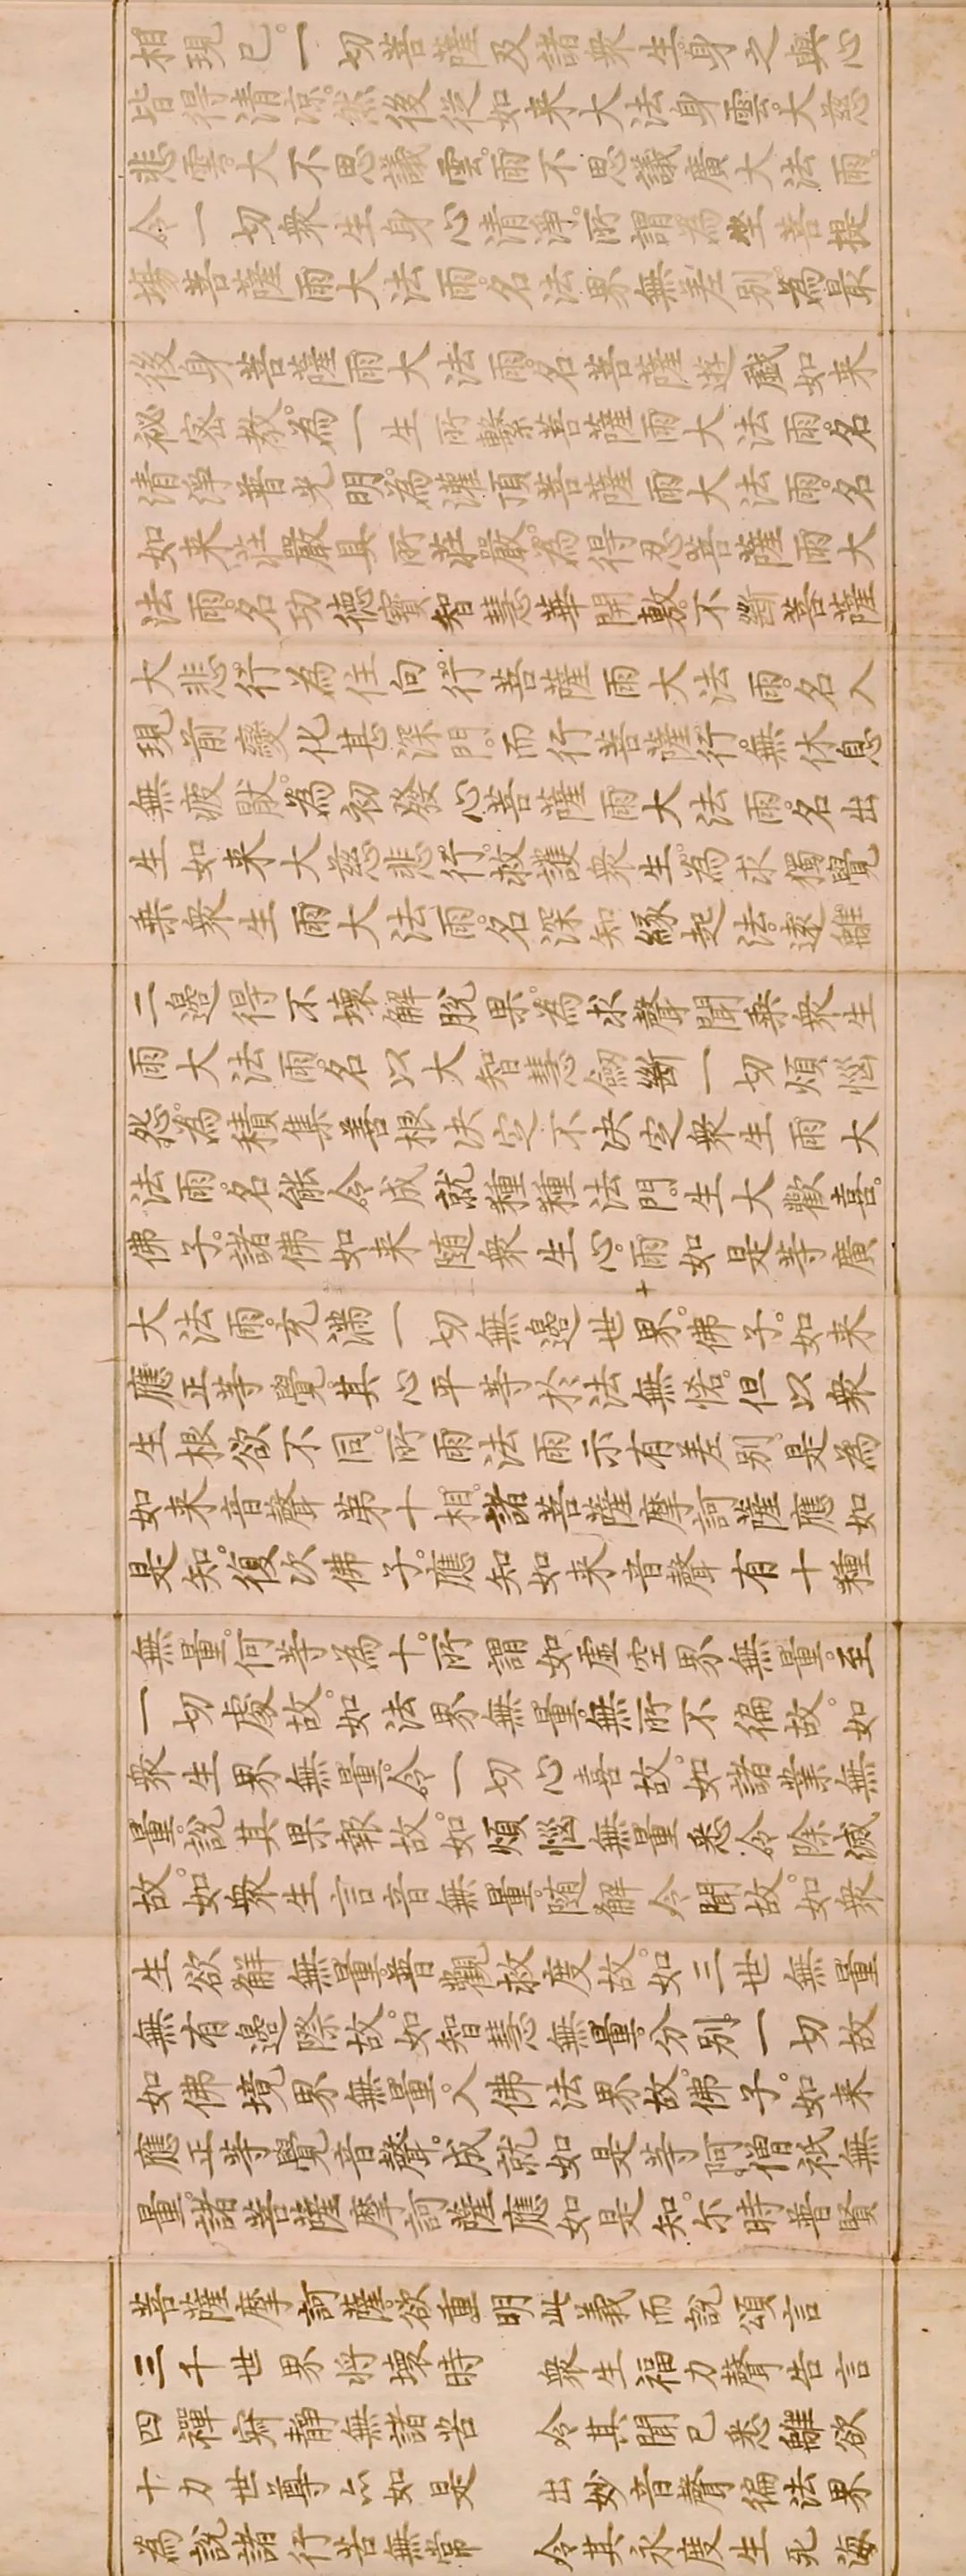 相現已。一切菩薩及諸衆生身之與心
皆得清涼。然後從如来大法身雲。大慈
悲雲。大不思議雲。雨不思議廣大法雨。
令一切衆生身心清淨。所謂為坐菩提
場菩薩雨大法雨。名法界無差別。為最
後身菩薩雨大法雨。名菩薩遊戲如来
祕密教。為一生所繫菩薩雨大法雨。名
清淨普光明。為灌頂菩薩雨大法雨。名
如来莊嚴具所莊嚴。為得忍菩薩雨大
法雨。名功德寶智慧華開敷。不斷菩薩
大悲行。為住向行菩薩雨大法雨。名入
現前變化甚深門。而行菩薩行。無休息
無疲猒。為初發心菩薩雨大法雨。名出
生如来大慈悲行。救護衆生。為求獨覺
乗衆生雨大法雨。名深知緣起法。遠離
二邊得不壞解脫果。為求聲聞乗衆生
雨大法雨。名以大智慧劒斷一切煩惱
怨。為積集善根決定不決定衆生雨大
法雨。名能令成就種種法門。生大歡喜。
佛子。諸佛如来随衆生心。雨如是等廣
大法雨。充滿一切無邊世界。佛子。如来
應正等覺。其心平等。於法無悋。但以衆
生根欲不同。所雨法雨。示有差別。是為
如来音聲第十相。諸菩薩摩訶薩應如
是知。復次佛子。應知如来音聲有十種
無量。何等為十。所謂如虛空界無量。至
一切處故。如法界無量。無所不徧故。如
衆生界無量。令一切心喜故。如諸業無
量。說其果報故。如煩惱無量。悉令除滅
故。如衆生言音無量。随解令聞故。如衆
生欲解無量。普觀救度故。如三世無量
無有邊際故。如智慧無量。分別一切故
如佛境界無量。入佛法界故。佛子。如来
應正等覺音聲。成就如是等阿僧祇無
量。諸菩薩摩訶薩應如是知。尒時普賢
菩薩摩訶薩。欲重明此義而說頌言
三千世界将壞時　衆生福力聲告言
四禪寂靜無諸苦　令其聞已悉離欲
十力世尊亦如是　出妙音聲徧法界
為說諸行苦無常　令其永度生死海